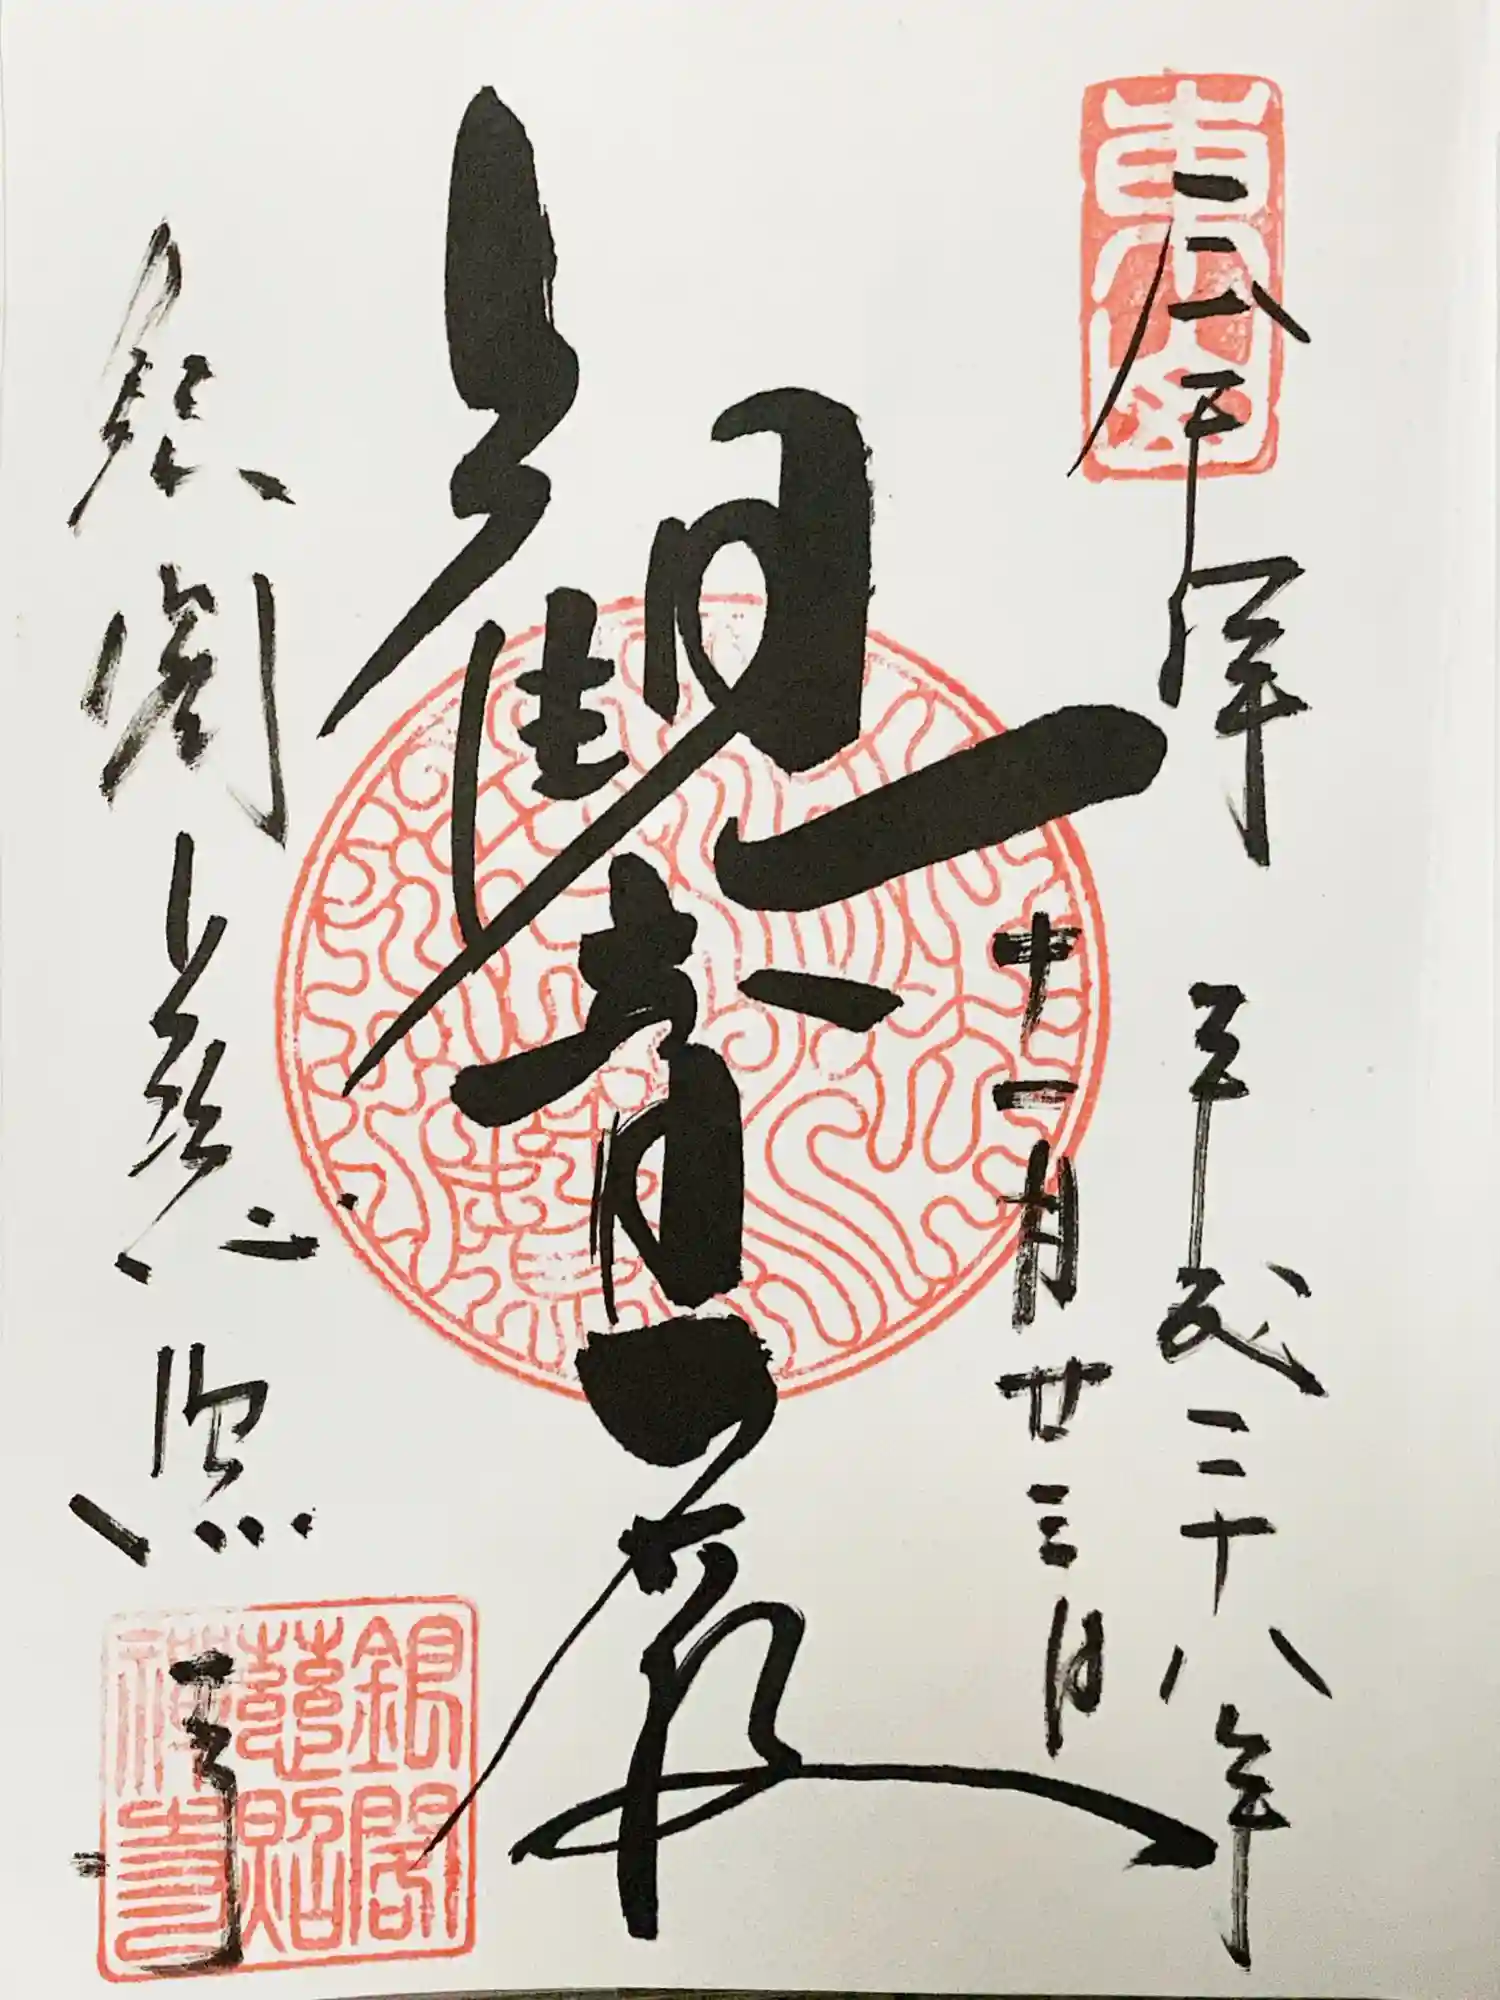 東山
奉拜
平成二十八年
十一月廿三日
觀音殿
銀閣慈照寺
銀閣
慈照
禅寺